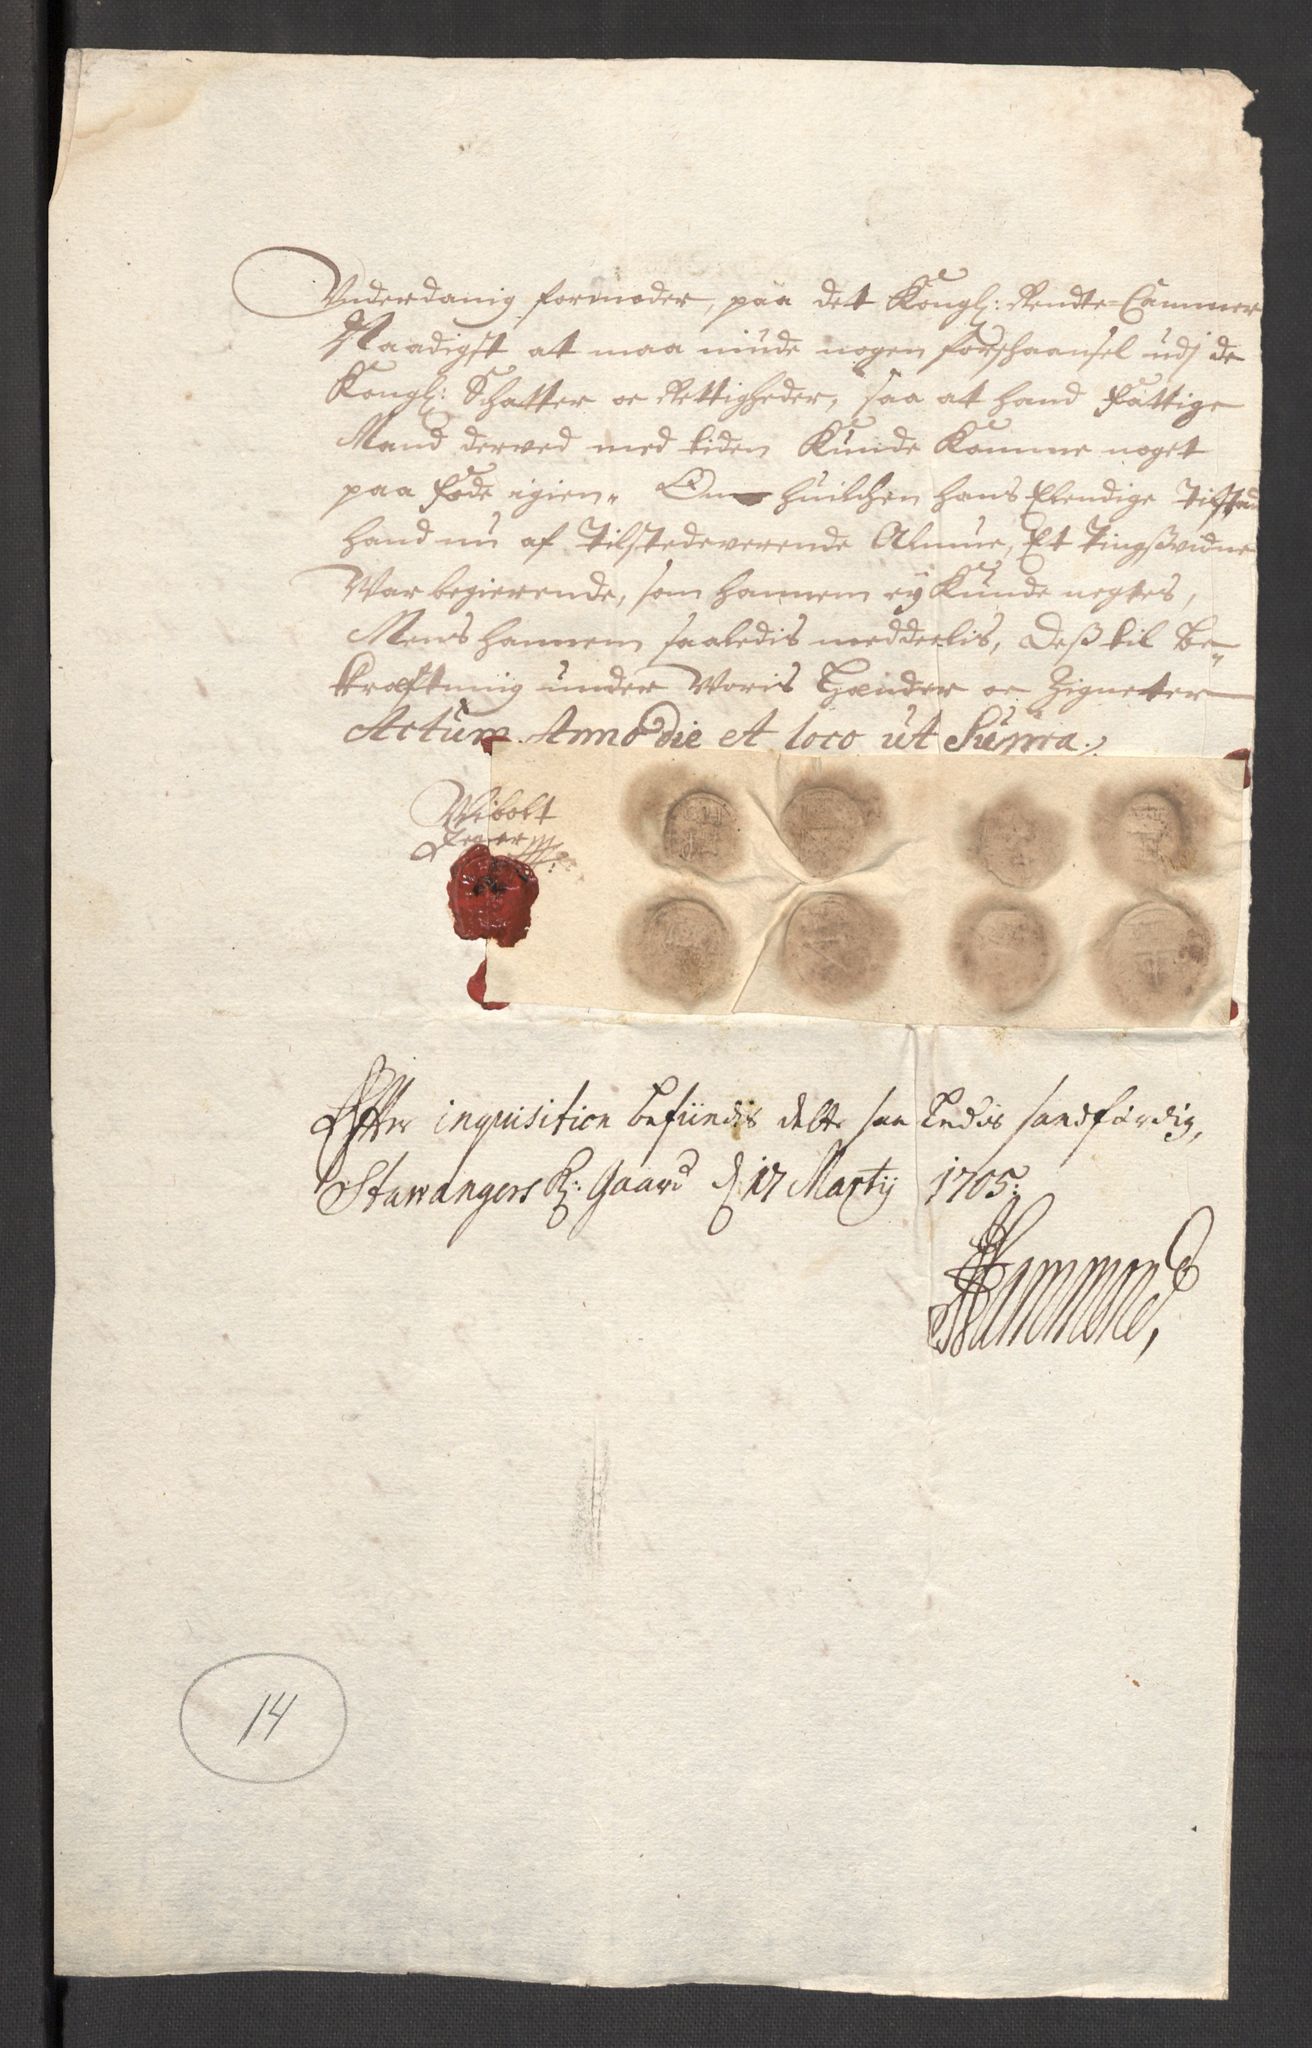 Underdanig formoder, paa det Kongl: Rendte-Cammer
Naadigst at maa niude nogen forschaansel udj de
Kongl: Schatter oc Rettigheder, saa at hand fattige
Mand derved med tiden Kunde Komme noget
paa fode igien„ Om huilchen hans Elendige Tilstand
hand nu af Tilstedeverende Almue, Et Tingsvidne
War begierende, som hannem ej Kunde negtes,
Mens hannem saaledis meddeelis, Dess til Be„
kræftning under Voris Hænder oc Zigneter
Actum Anno die et loco ut Supra.
Wibolt
Efter inquisition befindis dette saa ledis sandfærdig,
Stawangers K: Gaard d 17 Martij 1705:
Hammond,
14